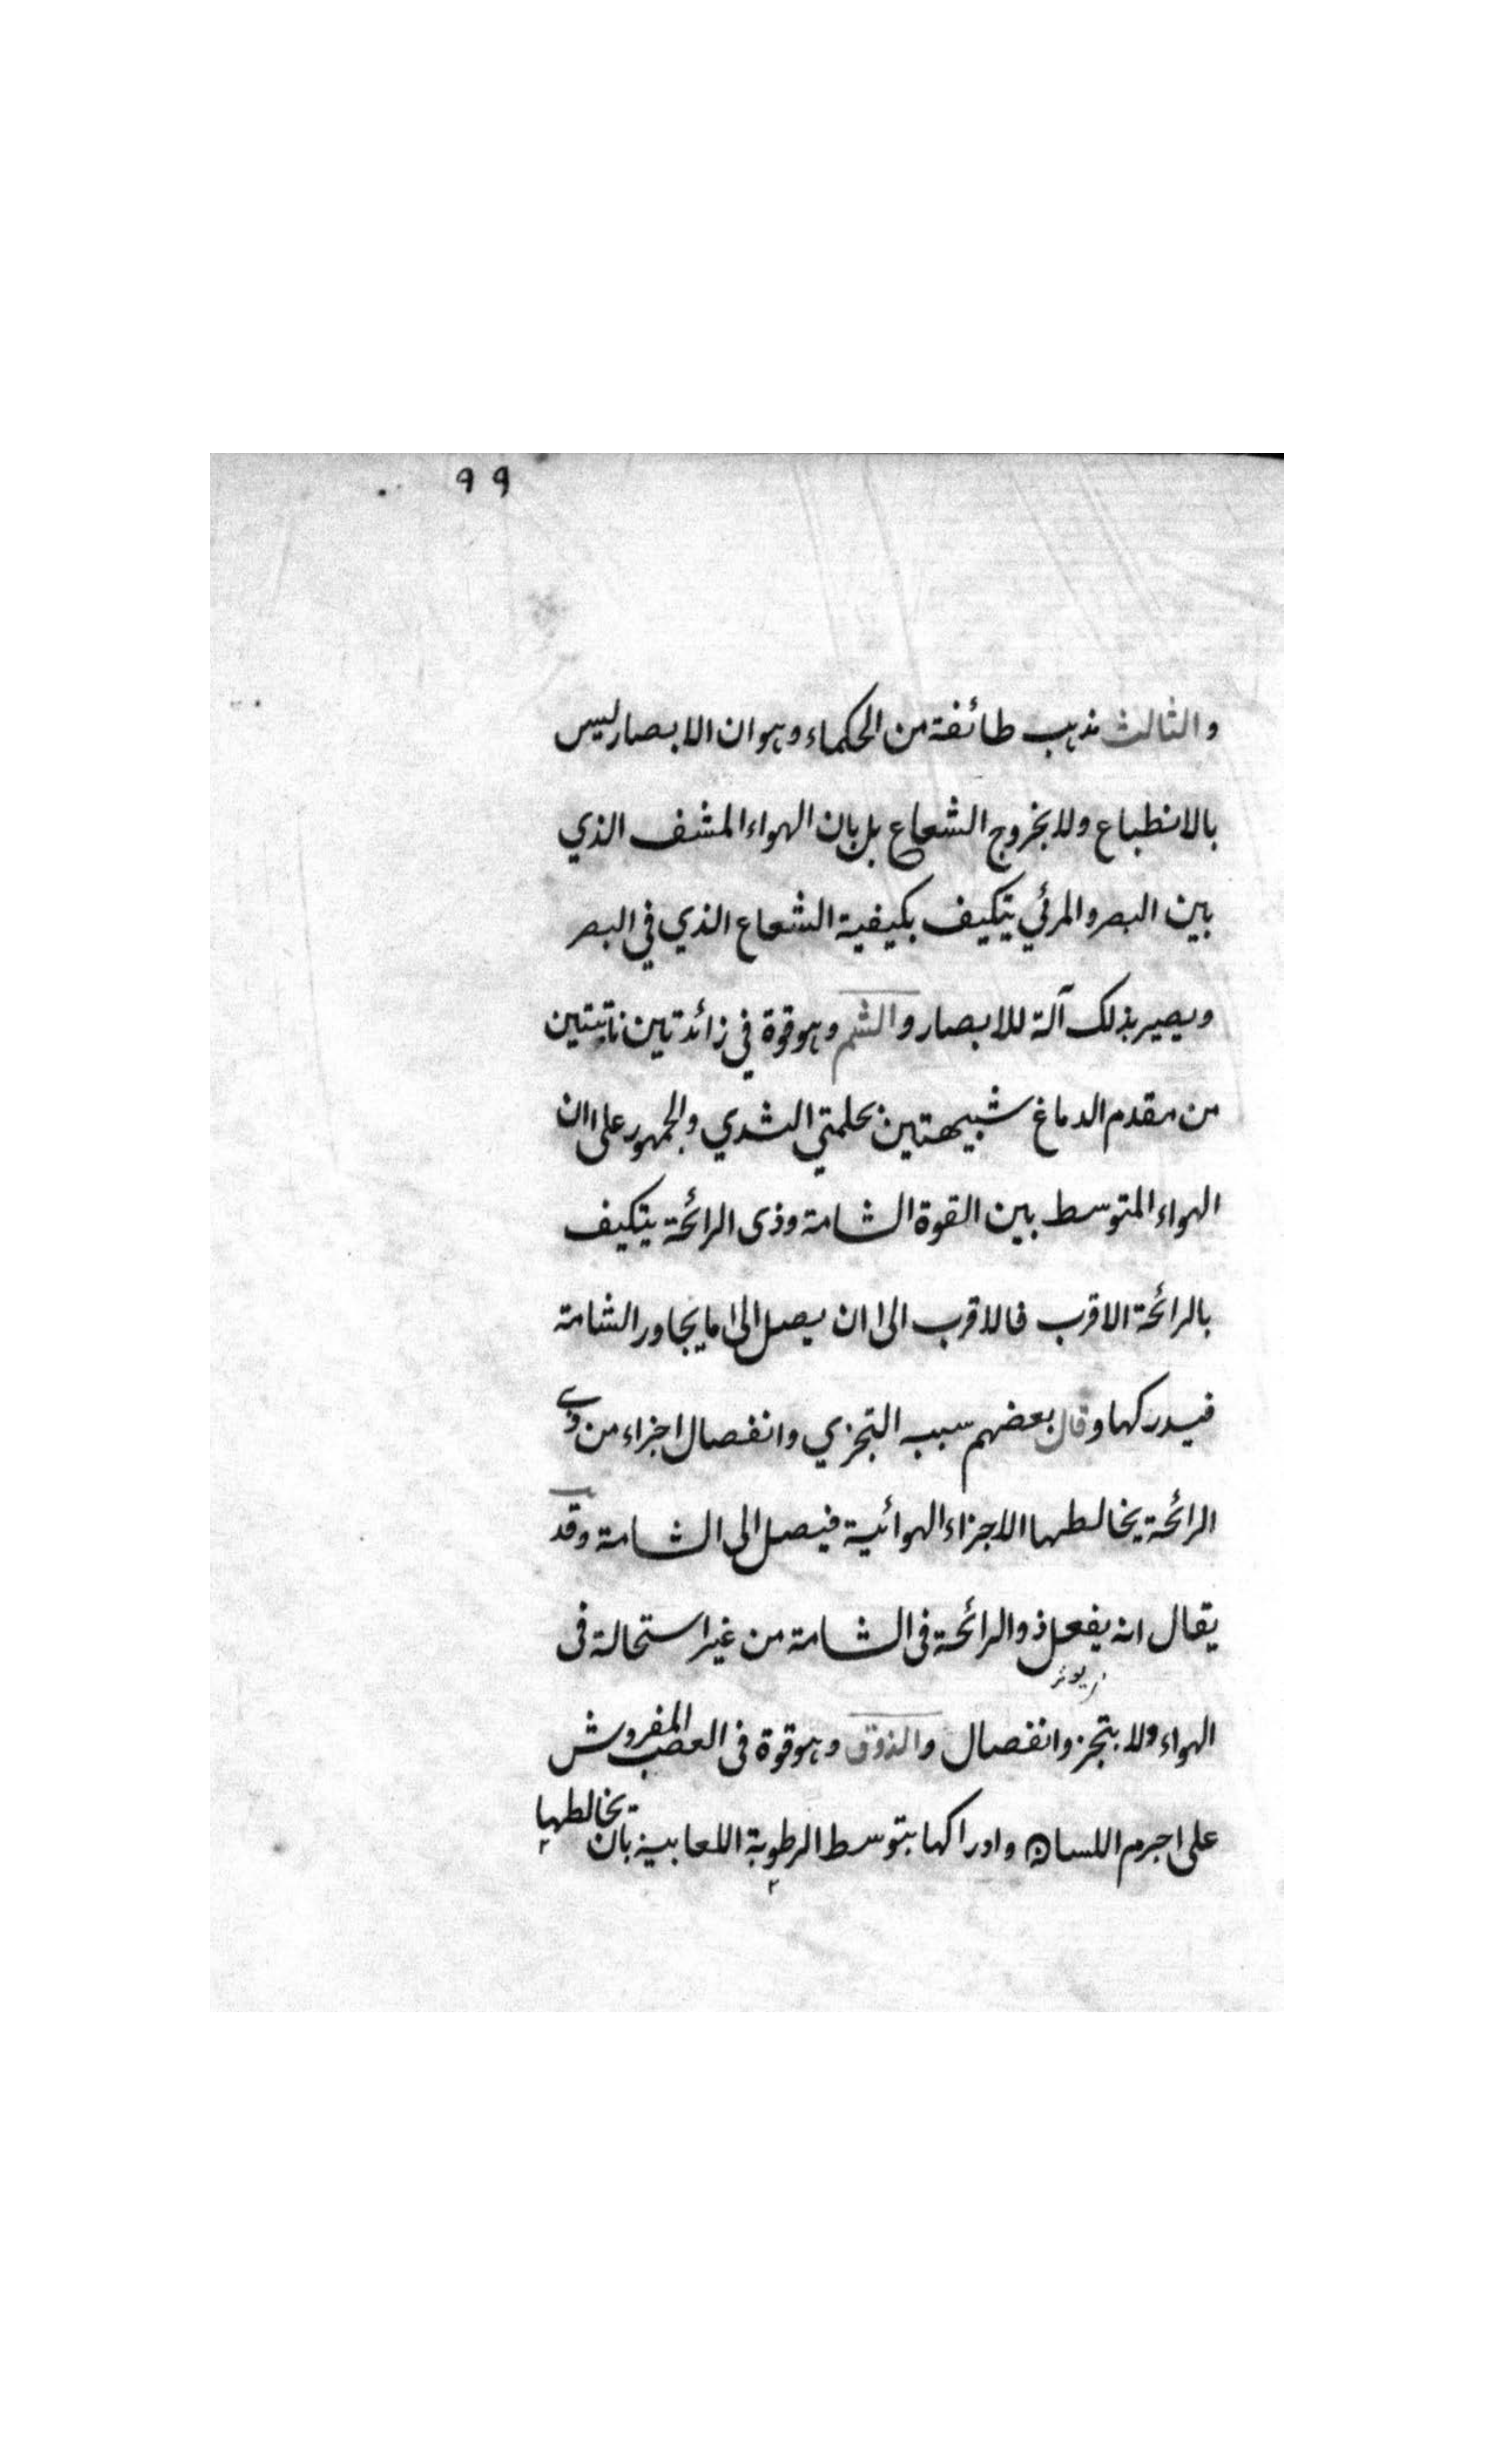 ٩٩
والثالث مذهب طائفة من الحكماء وهو ان الابصار ليس
بالانطباع ولا بخروج الشعاع بل بان الهواء المشف الذي
بين البصر والمرئي يتكيف بكيفية الشعاع الذي في البصر
ويصير بذلك آلة للابصار والشم وهو قوة في زائدتين ناتيتين
من مقدم الدماغ شبيهتين بحلمتي الثدي والجمهور على ان
الهواء المتوسط بين القوة الشامة وذى الرائحة يتكيف
بالرائحة الاقرب فالاقرب الى ان يصل الى ما يجاور الشامة
فيدركها وقال بعضهم سبب التجزي وانفصال اجزاء من ذي
الرائحة يخالطها الاجزاء الهوائية فيصل الى الشامة وقد
يقال انه يفعل ذو الرائحة فى الشامة من غير استحالة فى
الهواء ولا بتجز وانفصال والذوق وهو قوة فى العصب المفروش
على جرم اللسان وادراكها بتوسط الرطوبة اللعابية بان يخالطها